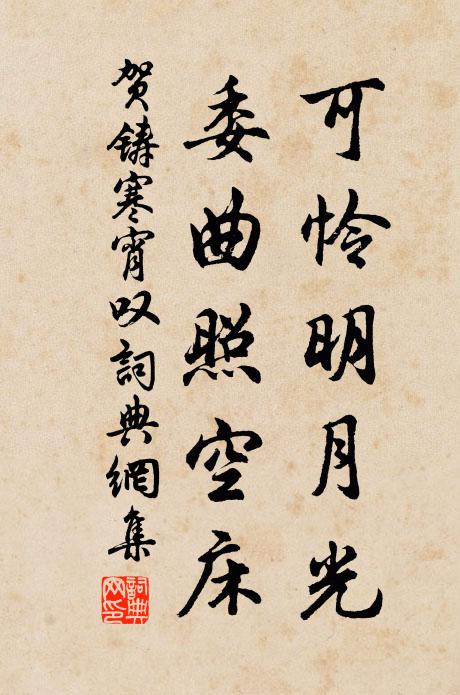 可怜明月光
委曲照空床
贺铸寒宵叹詞典網集
詞典网印